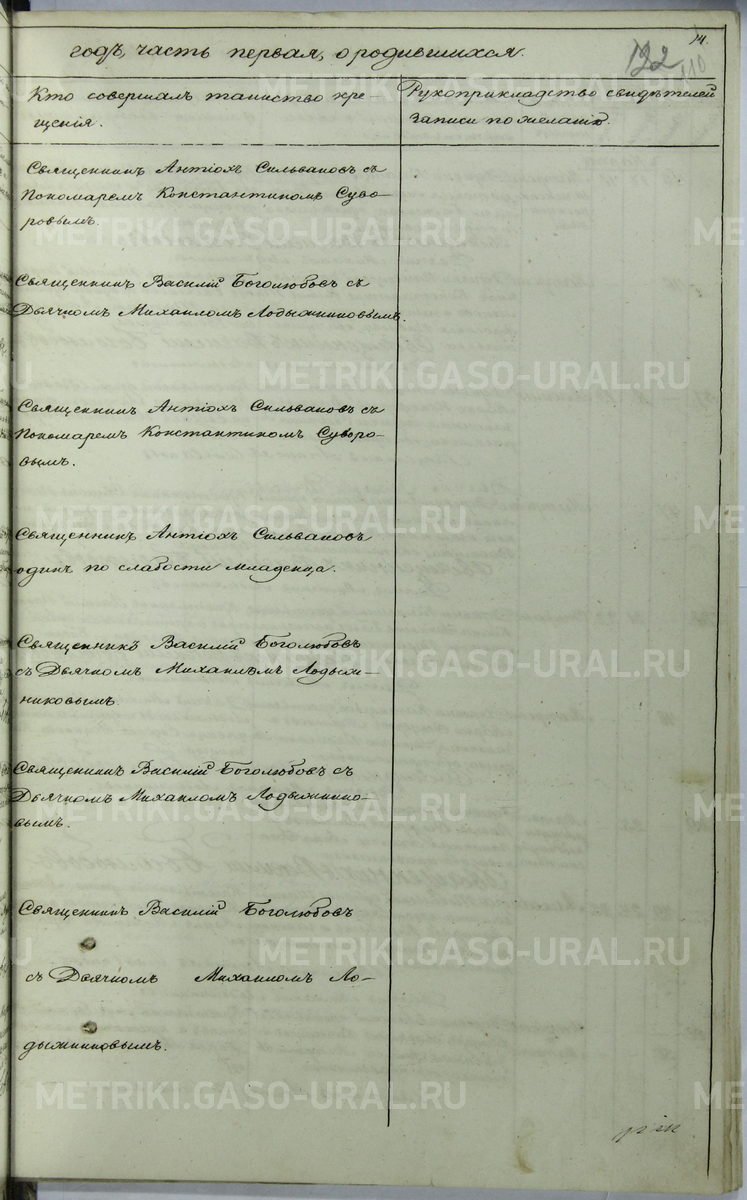 14.
годъ, часть первая, о родившихся.
132
110
Кто совершалъ таинство кре-
щенія.
Рукоприкладство свидѣтелей
записи по желанію.
Священникъ Антіохъ Сильвановъ съ
Пономаремъ Константиномъ Суво-
ровымъ.
Священникъ Василій Боголюбовъ съ
Дьячкомъ Михаиломъ Лодыжниковымъ.
Священникъ Антіохъ Сильвановъ съ
Пономаремъ Константиномъ Суворо-
вымъ.
Священникъ Антіохъ Сильвановъ
одинъ по слабости младенца.
Священникъ Василій Боголюбовъ
съ Дьячкомъ Михаиломъ Лодыж-
никовымъ.
Священникъ Василій Боголюбовъ съ
Дьячкомъ Михаиломъ Лодыжнико-
вымъ.
Священникъ Василій Боголюбовъ
съ Дьячкомъ Михаиломъ Ло-
дыжниковымъ.
METRIKI.GASO-URAL.RU